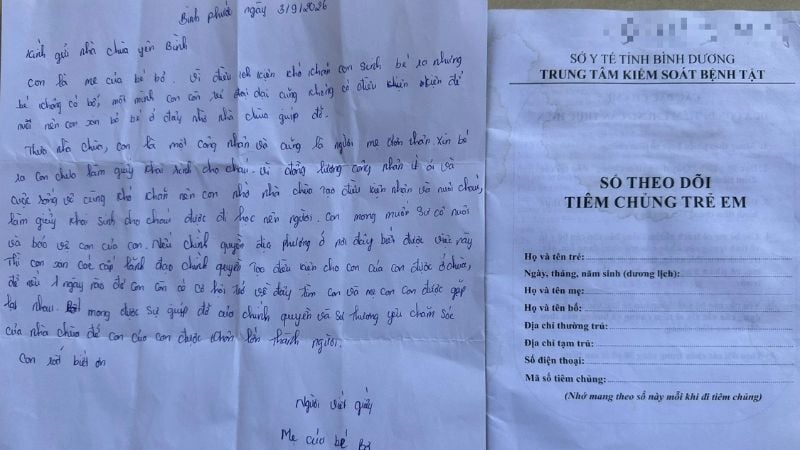 Bình phước ngày 3/9/2026
Kính gửi nhà chùa yên Bình
Con là mẹ của bé bỏ. Vì điều kiện khó khăn con sinh bé ra nhưng
bé không có bố, một mình con còn trẻ dại cũng không có điều khiện để
nuôi nên con xin bỏ bé ở đây nhờ nhà chùa giúp đỡ.
Thưa nhà chùa, con là một công nhân và cũng là người mẹ đơn thân sinh bé
ra con chưa làm giấy khai sinh cho cháu. vì đồng lương công nhân ít ỏi và
cuộc sống vô cùng khó khăn nên con nhờ nhà chùa tạo điều kiện nhân và nuôi cháu,
làm giấy khai sinh cho cháu được đi học nên người. Con mong muốn sư cô nuôi
và bảo vệ con của con. Nếu chính quyền địa phương ở nơi đây biết được việc này
Thì con xin các cấp lãnh đạo chính quyền tạo điều kiện cho con của con được ở chùa,
để nếu 1 ngày nào đó con còn có cơ hội trở về đây tìm con và mẹ con con được gặp
lại nhau. mong được sự giúp đỡ của chính quyền và sự thương yêu chăm sóc
của nhà chùa để con của con được khôn lớn thành người.
Con rất biết ơn
Người viết giấy
Mẹ của bé Bỏ
SỞ Y TẾ TỈNH BÌNH DƯƠNG
TRUNG TÂM KIỂM SOÁT BỆNH TẬT
SỔ THEO DÕI
TIÊM CHỦNG TRẺ EM
Họ và tên trẻ:
Ngày, tháng, năm sinh (dương lịch):
Họ và tên mẹ:
Họ và tên bố:
Địa chỉ thường trú:
Địa chỉ tạm trú:
Số điện thoại:
Mã số tiêm chủng:
(Nhớ mang theo sổ này mỗi khi đi tiêm chủng)